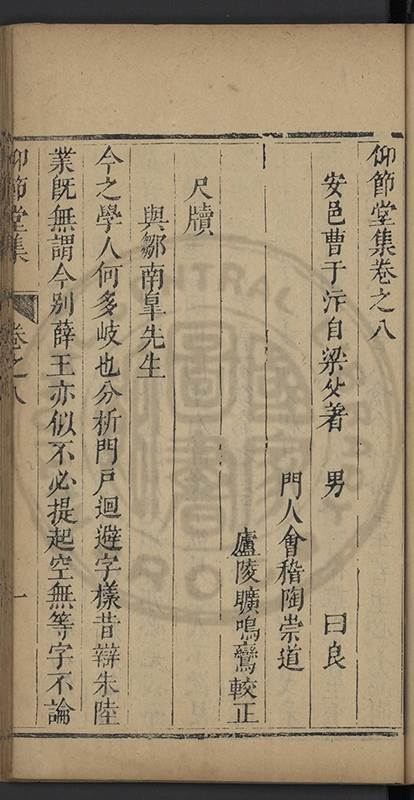 仰節堂集卷之八
安邑曹于汴自梁父著　男　曰良
門人會稽陶崇道
廬陵曠鳴鸞較正
尺牘
與鄒南皐先生
今之學人何多岐也分析門戶迴避字樣昔辯朱陸
業既無謂今别薛王亦似不必提起空無等字不論
仰節堂集　卷之八　一